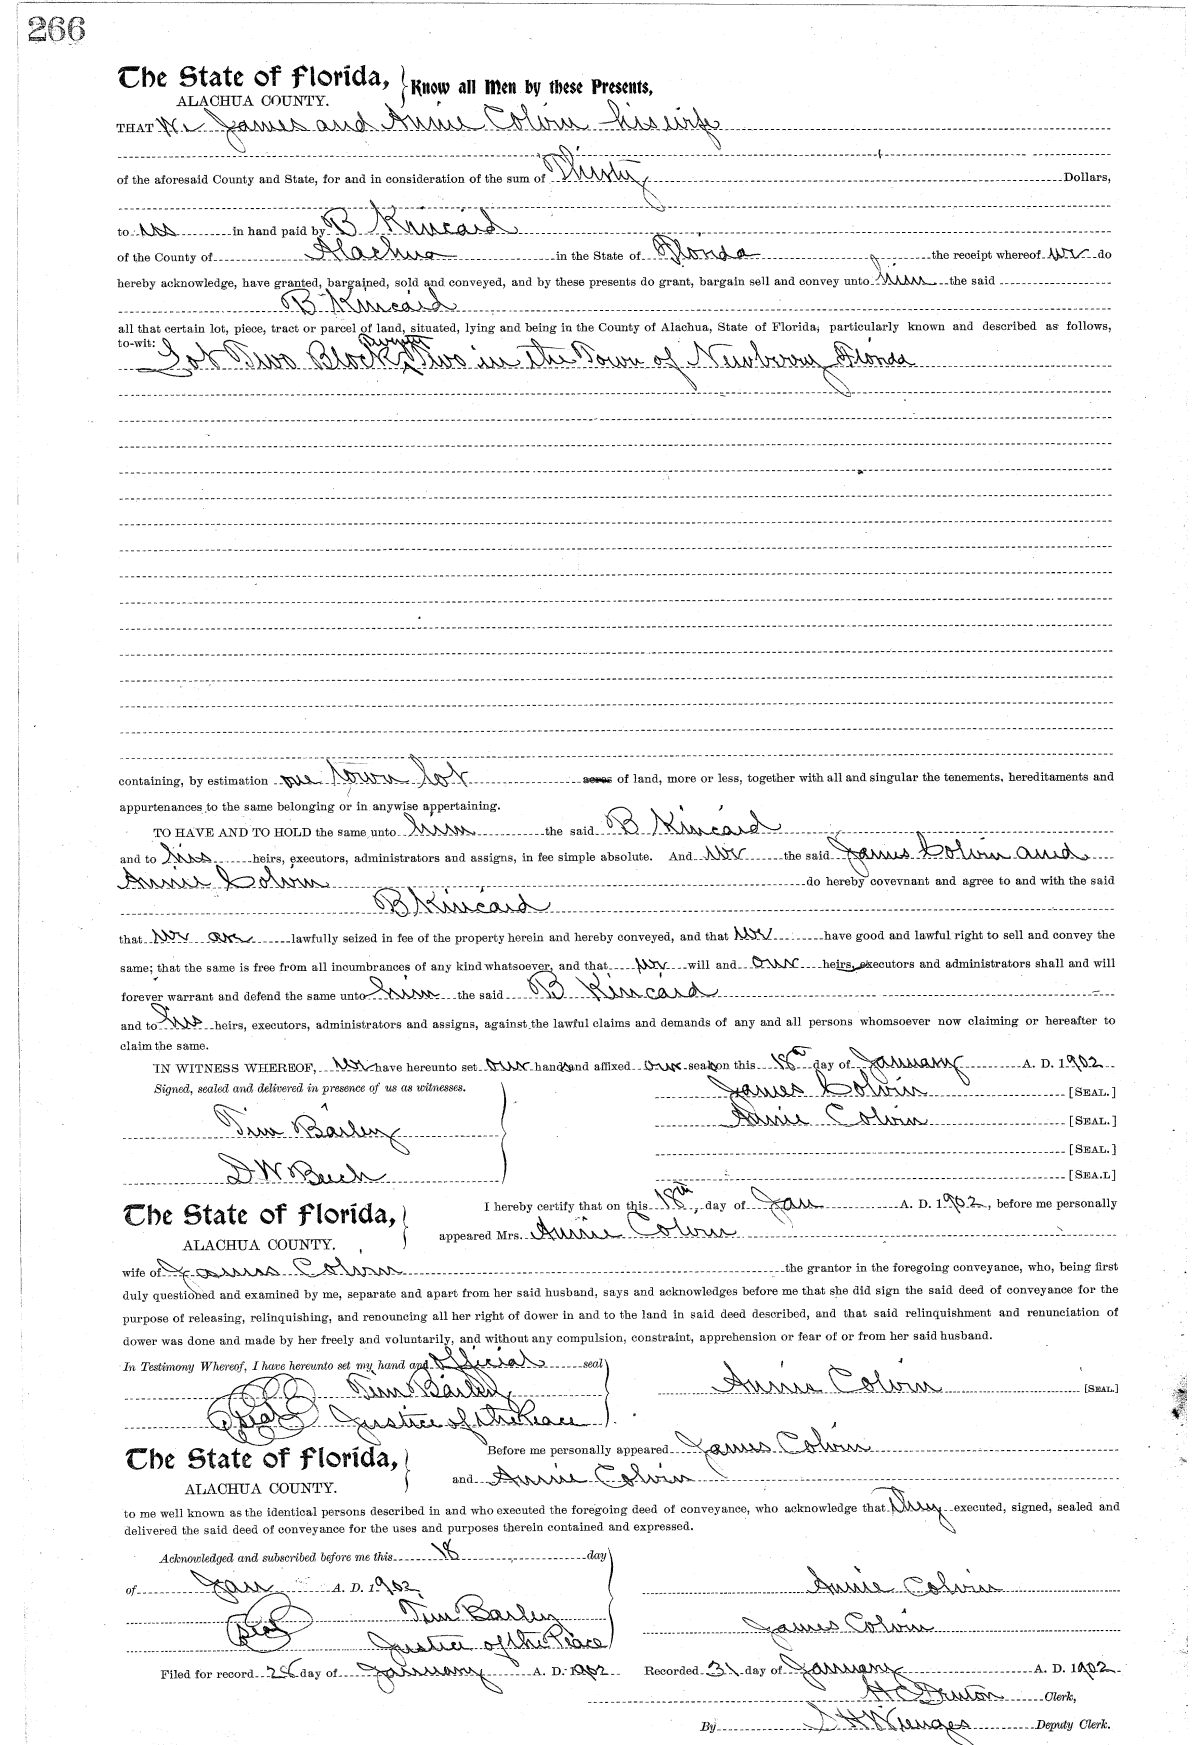 266
The State of Florida, Know all Men by these Presents,
ALACHUA COUNTY.
THAT We James and Annie Colvin his wife
of the aforesaid County and State, for and in consideration of the sum of Thirty Dollars,
to us in hand paid by B Kincaid
of the County of Alachua in the State of Florida the receipt whereof we do
hereby acknowledge, have granted, bargained, sold and conveyed, and by these presents do grant, bargain sell and convey unto him the said
B Kincaid
all that certain lot, piece, tract or parcel of land, situated, lying and being in the County of Alachua, State of Florida, particularly known and described as follows,
to-wit: Lot Two Block Twenty Two in the Town of Newberry Florida
containing, by estimation one town lot acres of land, more or less, together with all and singular the tenements, hereditaments and
appurtenances to the same belonging or in anywise appertaining.
TO HAVE AND TO HOLD the same unto him the said B Kincaid
and to his heirs, executors, administrators and assigns, in fee simple absolute. And we the said James Colvin and
Annie Colvin do hereby covevnant and agree to and with the said
B Kincaid
that we are lawfully seized in fee of the property herein and hereby conveyed, and that we have good and lawful right to sell and convey the
same; that the same is free from all incumbrances of any kind whatsoever, and that we will and our heirs, executors and administrators shall and will
forever warrant and defend the same unto him the said B Kincaid
and to his heirs, executors, administrators and assigns, against the lawful claims and demands of any and all persons whomsoever now claiming or hereafter to
claim the same.
IN WITNESS WHEREOF, we have hereunto set our hands and affixed our seals on this 18th day of January A. D. 1902
Signed, sealed and delivered in presence of us as witnesses. James Colvin [SEAL.]
Annie Colvin [SEAL.]
Tim Barley
[SEAL.]
D W Beech [SEAL.]
The State of Florida, I hereby certify that on this 18th, day of Jan A. D. 1902, before me personally
ALACHUA COUNTY. appeared Mrs. Annie Colvin
wife of James Colvin the grantor in the foregoing conveyance, who, being first
duly questioned and examined by me, separate and apart from her said husband, says and acknowledges before me that she did sign the said deed of conveyance for the
purpose of releasing, relinquishing, and renouncing all her right of dower in and to the land in said deed described, and that said relinquishment and renunciation of
dower was done and made by her freely and voluntarily, and without any compulsion, constraint, apprehension or fear of or from her said husband.
In Testimony Whereof, I have hereunto set my hand and official seal
Tim Barley Annie Colvin [SEAL.]
Seal Justice of the Peace
The State of Florida, Before me personally appeared James Colvin
ALACHUA COUNTY. and Annie Colvin
to me well known as the identical persons described in and who executed the foregoing deed of conveyance, who acknowledge that they executed, signed, sealed and
delivered the said deed of conveyance for the uses and purposes therein contained and expressed.
Acknowledged and subscribed before me this 18 day
of Jan A. D. 1902 Annie Colvin
Tim Barley
James Colvin
Seal Justice of the Peace
Filed for record 28 day of January A. D. 1902 Recorded 31 day of January A. D. 1902
H C Denton Clerk,
By S H Wienges Deputy Clerk.